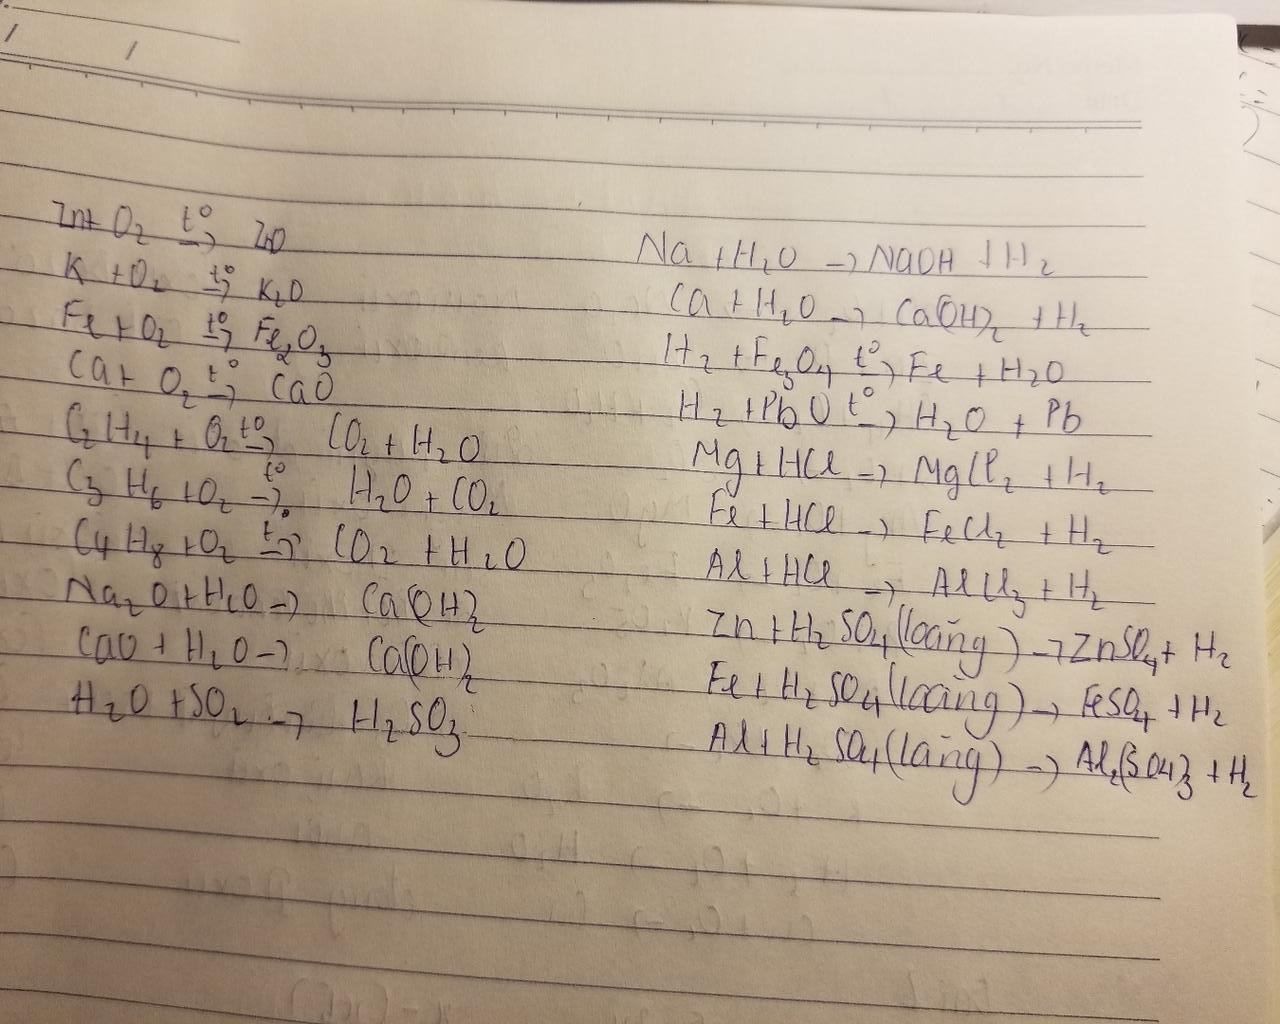 Zn + O₂ →(t°) ZnO
K + O₂ →(t°) K₂O
Fe + O₂ →(t°) Fe₂O₃
Ca + O₂ →(t°) CaO
C₂H₄ + O₂ →(t°) CO₂ + H₂O
C₃H₆ + O₂ →(t°) H₂O + CO₂
C₄H₈ + O₂ →(t°) CO₂ + H₂O
Na₂O + H₂O → Ca(OH)₂
CaO + H₂O → Ca(OH)₂
H₂O + SO₂ → H₂SO₃
Na + H₂O → NaOH + H₂
Ca + H₂O → Ca(OH)₂ + H₂
H₂ + Fe₃O₄ →(t°) Fe + H₂O
H₂ + PbO →(t°) H₂O + Pb
Mg + HCl → MgCl₂ + H₂
Fe + HCl → FeCl₂ + H₂
Al + HCl → AlCl₃ + H₂
Zn + H₂SO₄ (loãng) → ZnSO₄ + H₂
Fe + H₂SO₄ (loãng) → FeSO₄ + H₂
Al + H₂SO₄ (lãng) → Al₂(SO₄)₃ + H₂